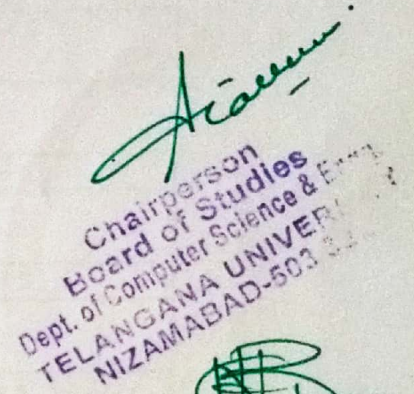 Chairperson
Board of Studies
Dept. of Computer Science &
TELANGANA
NIZAMABAD-503